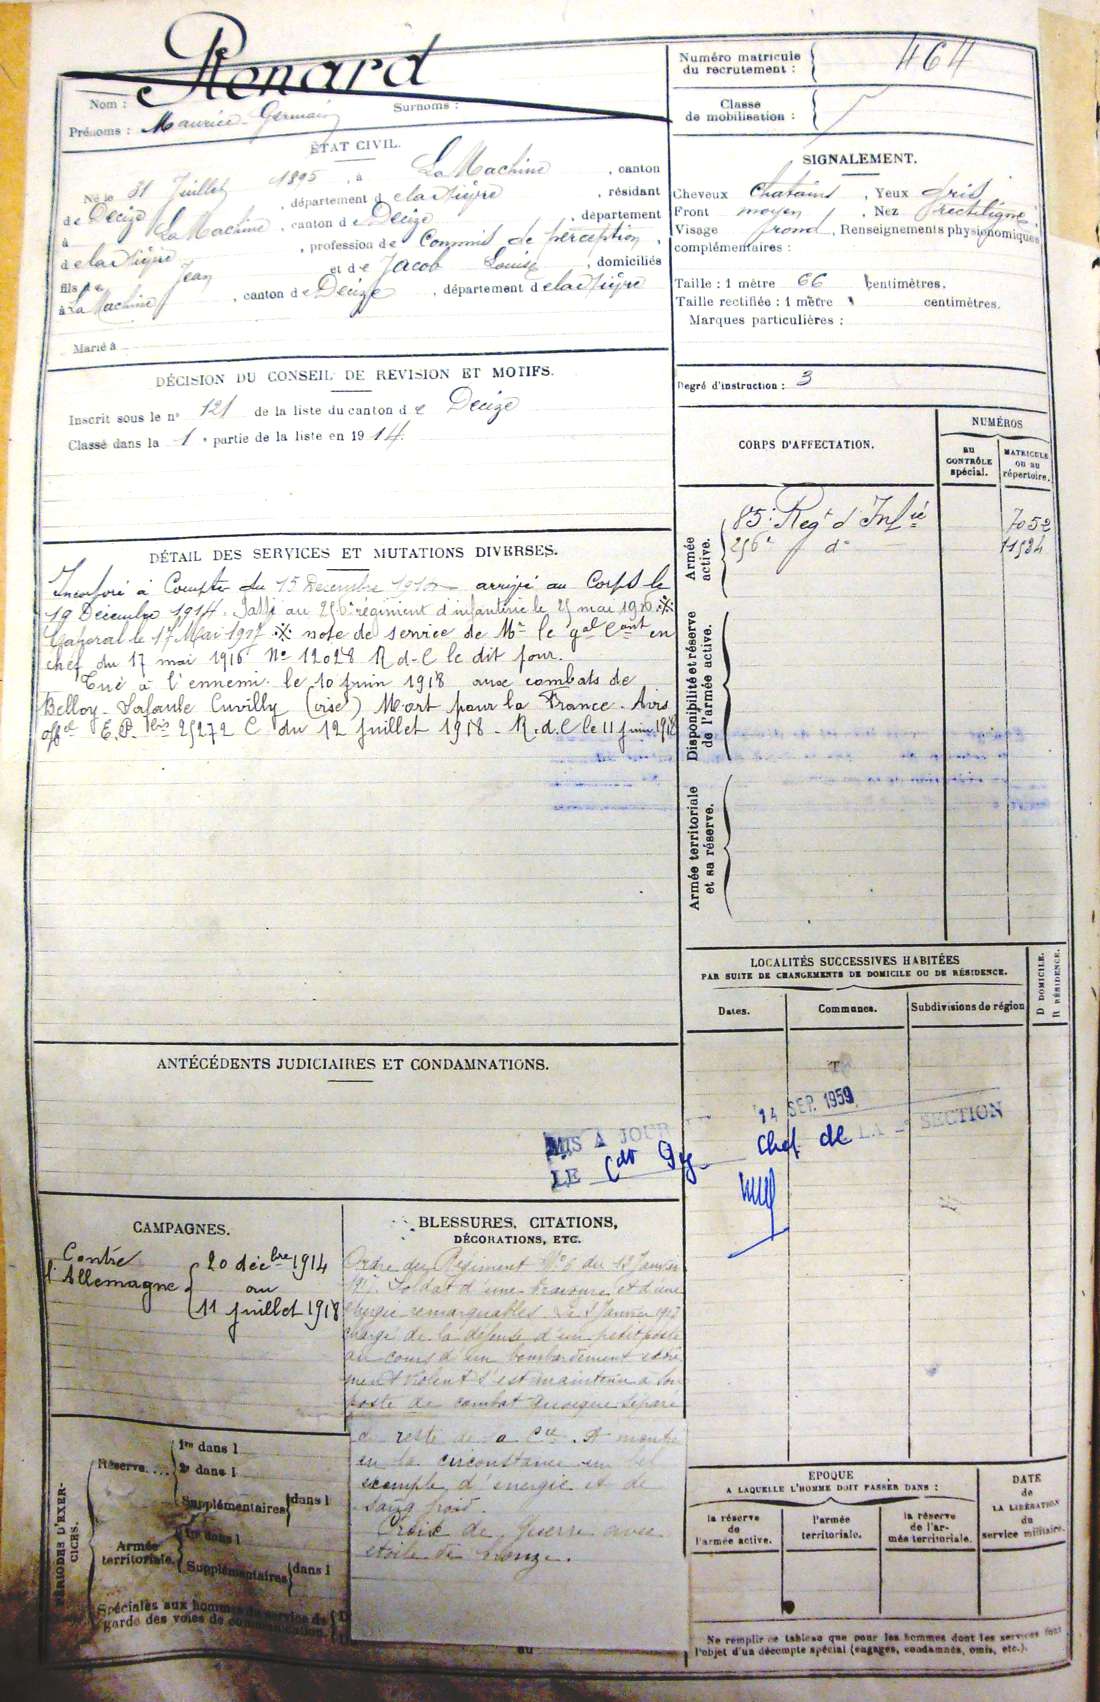 Renard
Nom :
Surnoms :
Prénoms : Maurice-Germain
Numéro matricule
du recrutement : 464
Classe
de mobilisation :
ÉTAT CIVIL.
Né le 31 Juillet 1895, à La Machine, canton
de Decize, département de la Nièvre, résidant
à La Machine, canton de Decize, département
de la Nièvre, profession de Commis de perception,
fils de Jean et de Jacob Louise, domiciliés
à La Machine, canton de Decize, département de la Nièvre
Marié à
SIGNALEMENT.
Cheveux chatains, Yeux gris
Front moyen, Nez rectiligne
Visage rond, Renseignements physionomiques
complémentaires :
Taille : 1 mètre 66 centimètres.
Taille rectifiée : 1 mètre centimètres.
Marques particulières :
Degré d'instruction : 3
DÉCISION DU CONSEIL DE REVISION ET MOTIFS.
Inscrit sous le n° 121 de la liste du canton de Decize
Classé dans la 1e partie de la liste en 1914.
CORPS D'AFFECTATION.
NUMÉROS
au
CONTRÔLE
spécial.
MATRICULE
ou au
répertoire.
Armée
active.
85e Regt d'Infie 7052
256e do 11524
Disponibilité et réserve
de l'armée active.
Armée territoriale
et sa réserve.
DÉTAIL DES SERVICES ET MUTATIONS DIVERSES.
Incorporé à Compter du 15 Décembre 1914 arrivé au Corps le
19 Décembre 1914. Passé au 256 régiment d'infanterie le 25 mai 1916 ※
Caporal le 17 Mai 1917 ※ note de service de Mr le gal Cant en
chef du 17 mai 1916 No 12028 R d-C le dit jour.
Tué à l'ennemi le 10 juin 1918 aux combats de
Belloy-Lataule Cuvilly (oise) Mort pour la France. Avis
offel E.P. bis 25272 C du 12 juillet 1918. R.d.C le 11 juin 1918
LOCALITÉS SUCCESSIVES HABITÉES
PAR SUITE DE CHANGEMENTS DE DOMICILE OU DE RÉSIDENCE.
Dates.
Communes.
Subdivisions de région
D DOMICILE.
R RÉSIDENCE.
ANTÉCÉDENTS JUDICIAIRES ET CONDAMNATIONS.
MIS A JOUR
14 SEP. 1959
LE Chef de LA SECTION
CAMPAGNES.
Contre
l'Allemagne
20 décbre 1914
au
11 juillet 1918
BLESSURES, CITATIONS,
DÉCORATIONS, ETC.
Ordre du Régiment No 6 du 12 Janvier
1917. Soldat d'une bravoure et d'une
énergie remarquables. Le 8 Janvier 1917
chargé de la défense d'un petit poste
au cours d'un bombardement
violent s'est maintenu à son
poste de combat quoique séparé
du reste de sa Cie. A montré
en la circonstance un bel
exemple d'énergie et de
sang froid
Croix de Guerre avec
étoile de bronze.
PÉRIODES D'EXER-
CICES.
Réserve....
1re dans l
2e dans l
Supplémentaires dans l
Armée
territoriale.
1re dans l
Supplémentaires dans l
Spéciales aux hommes du service de
garde des voies de communication.
ÉPOQUE
A LAQUELLE L'HOMME DOIT PASSER DANS :
la réserve
de
l'armée active.
l'armée
territoriale.
la réserve
de l'ar-
mée territoriale.
DATE
de
LA LIBÉRATION
du
service militaire.
Ne remplir ce tableau que pour les hommes dont les services font
l'objet d'un décompte spécial (engagés, condamnés, omis, etc.).